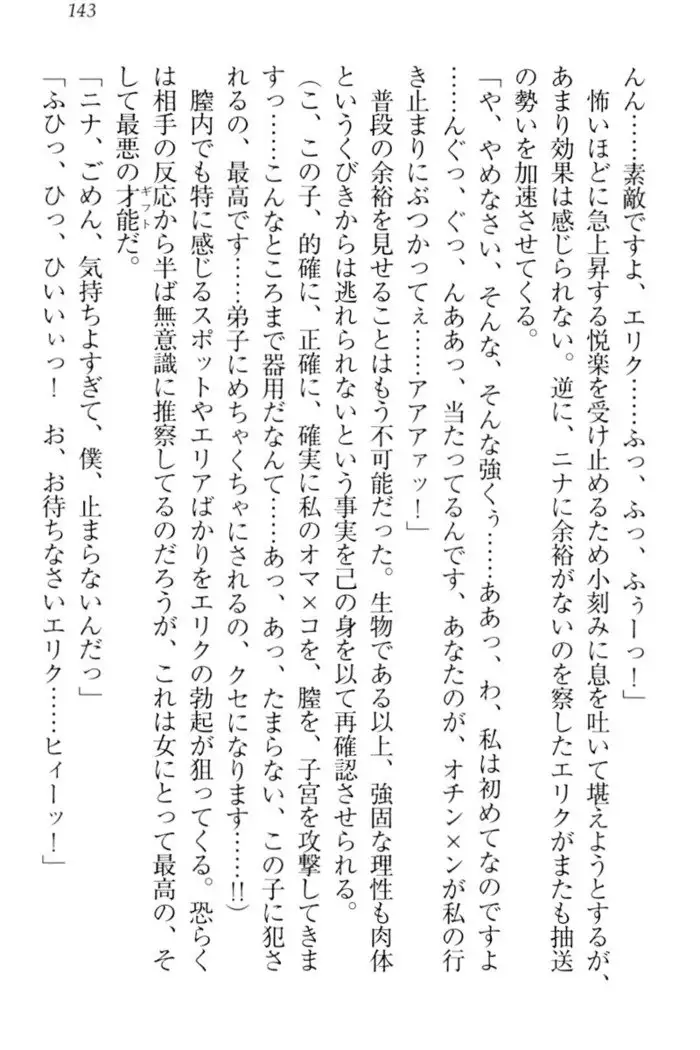 143
んん……素敵ですよ、エリク……ふっ、ふっ、ふぅーっ！」
怖いほどに急上昇する悦楽を受け止めるため小刻みに息を吐いて堪えようとするが、
あまり効果は感じられない。逆に、ニナに余裕がないのを察したエリクがまたも抽送
の勢いを加速させてくる。
「や、やめなさい、そんな、そんな強くぅ……ああっ、わ、私は初めてなのですよ
……んぐっ、ぐっ、んああっ、当たってるんです、あなたのが、オチン×ンが私の行
き止まりにぶつかってぇ……アアアァッ！」
普段の余裕を見せることはもう不可能だった。生物である以上、強固な理性も肉体
というくびきからは逃れられないという事実を己の身を以て再確認させられる。
（こ、この子、的確に、正確に、確実に私のオマ×コを、膣を、子宮を攻撃してきま
すっ……こんなところまで器用だなんて……あっ、あっ、たまらない、この子に犯さ
れるの、最高です……弟子にめちゃくちゃにされるの、クセになります……!!）
膣内でも特に感じるスポットやエリアばかりをエリクの勃起が狙ってくる。恐らく
は相手の反応から半ば無意識に推察してるのだろうが、これは女にとって最高の、そ
して最悪の才能だ。
ギフト
「ニナ、ごめん、気持ちよすぎて、僕、止まらないんだっ」
「ふひっ、ひっ、ひいいぃっ！　お、お待ちなさいエリク……ヒィーッ！」